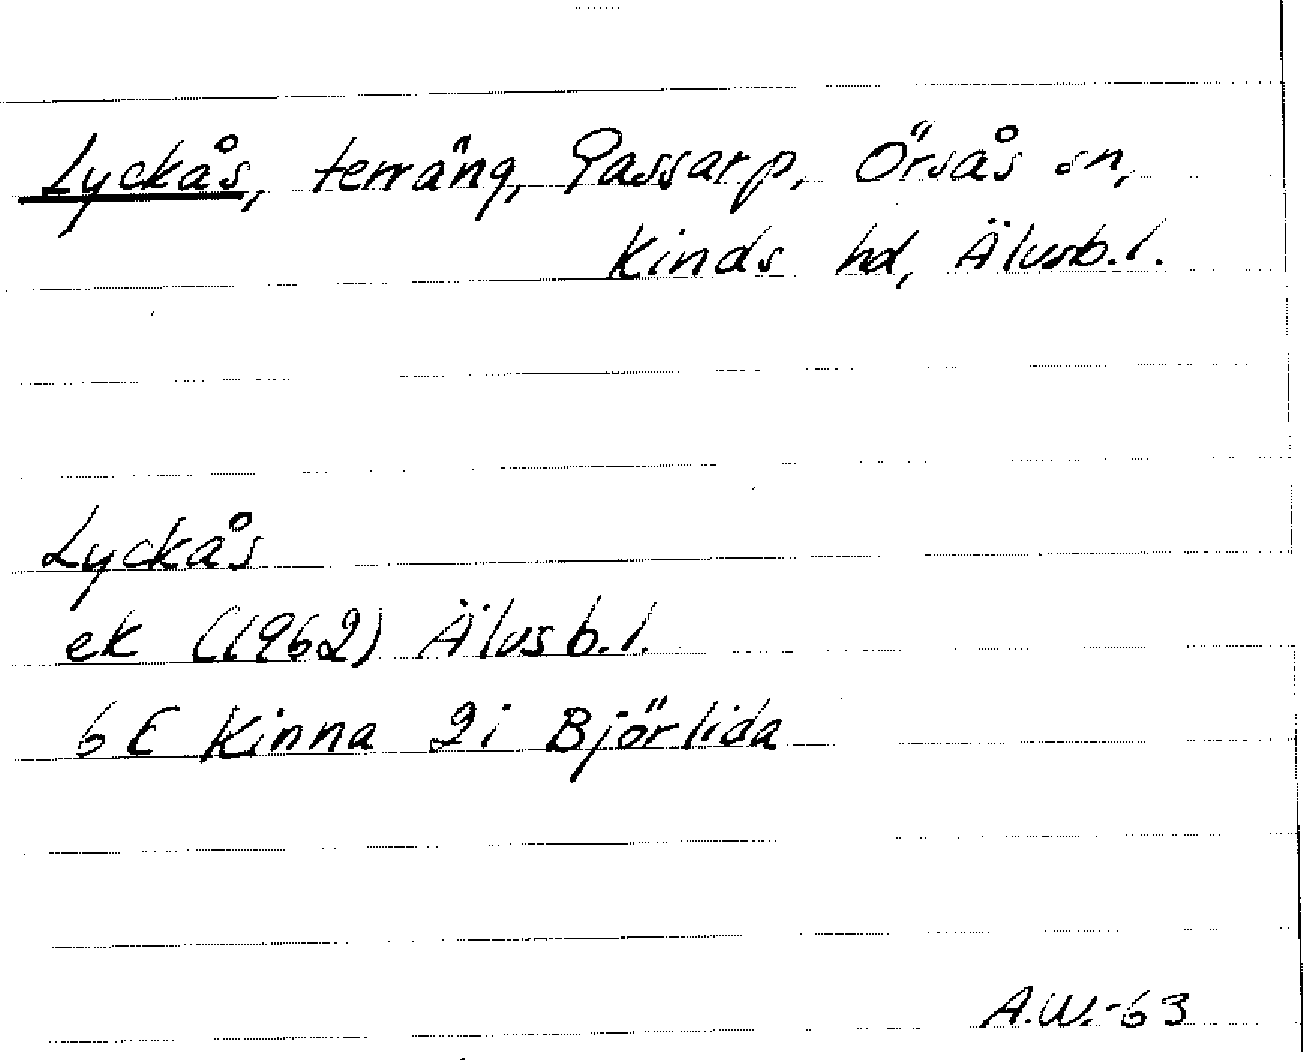 Lyckås, terräng, Passarp, Örsås sn,
Kinds hd, Älvsb.l.
Lyckås
ek (1962) Älvsb.l.
6E Kinna 2i Björlida
A.W.-63